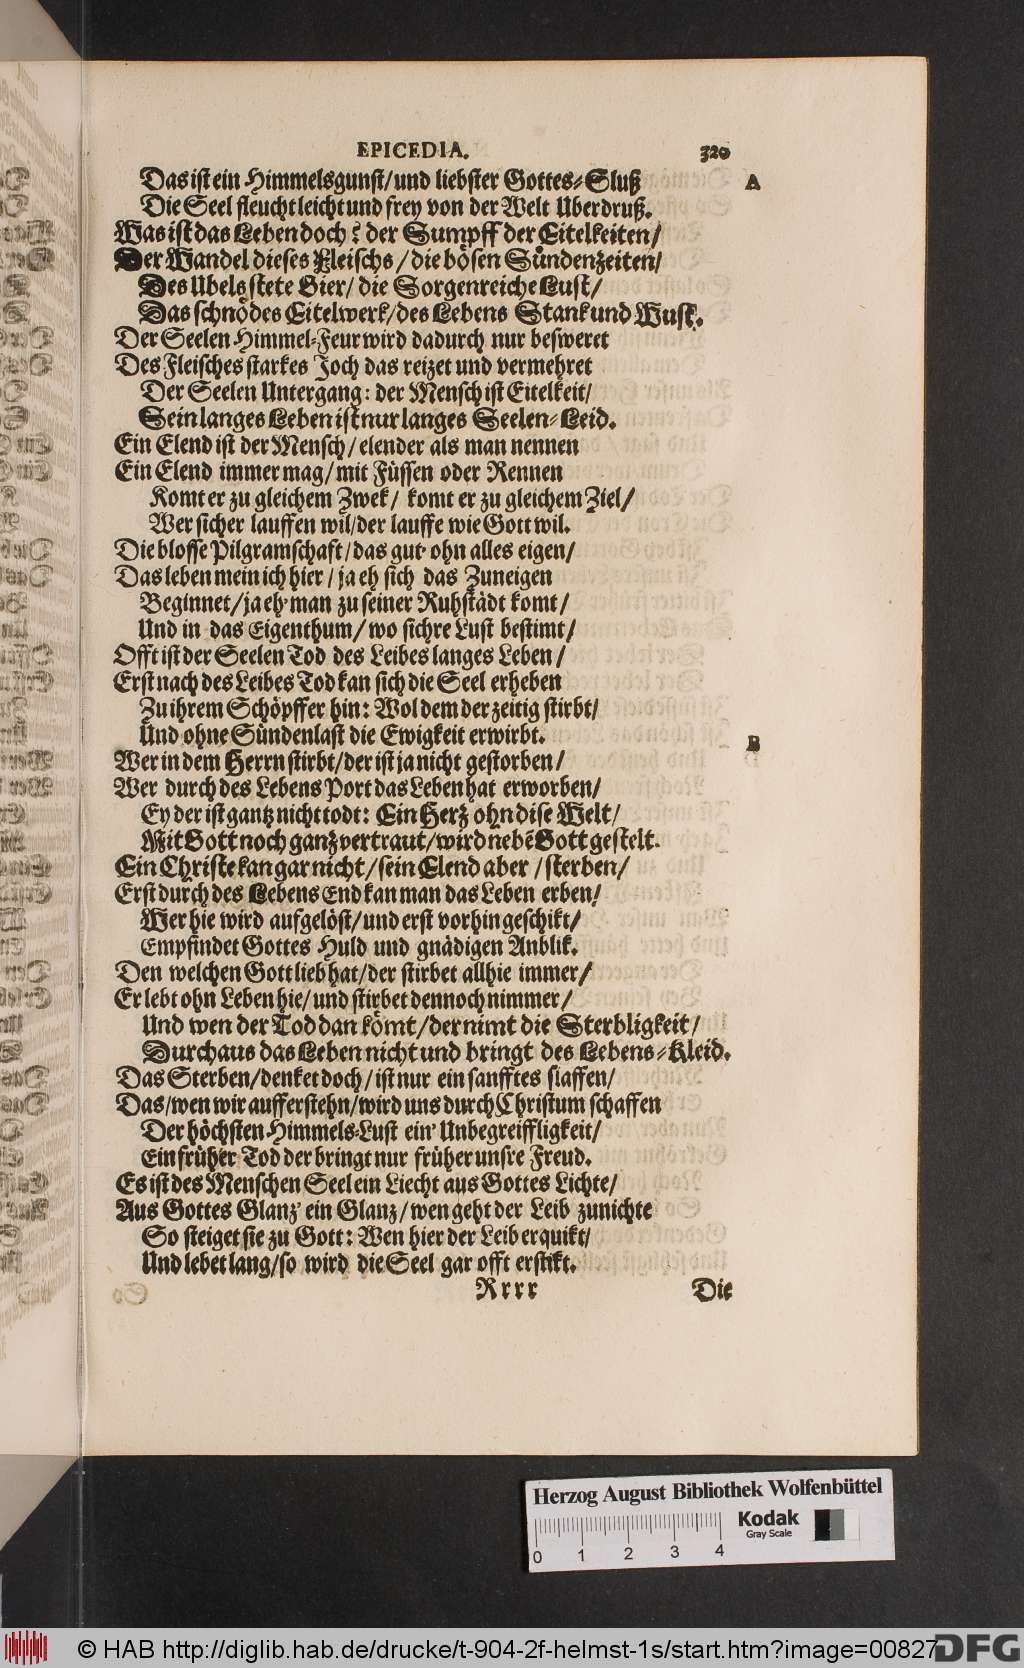 EPICEDIA. 320
Das ist ein Himmelsgunst/und liebster Gottes-Sluß A
Die Seel fleucht leicht und frey von der Welt Uberdruß.
Was ist das Leben doch? der Sumpff der Eitelkeiten/
Der Wandel dieses Fleischs/die bösen Sündenzeiten/
Des Ubels stete Gier/die Sorgenreiche Lust/
Das schnödes Eitelwerk/des Lebens Stank und Wust.
Der Seelen Himmel-Feur wird dadurch nur besweret
Des Fleisches starkes Joch das reizet und vermehret
Der Seelen Untergang: der Mensch ist Eitelkeit/
Sein langes Leben ist nur langes Seelen-Leid.
Ein Elend ist der Mensch/elender als man nennen
Ein Elend immer mag/mit Füssen oder Rennen
Komt er zu gleichem Zwek/ komt er zu gleichem Ziel/
Wer sicher lauffen wil/der lauffe wie Gott wil.
Die blosse Pilgramschaft/das gut' ohn alles eigen/
Das leben mein ich hier/ja eh sich das Zuneigen
Beginnet/ja eh' man zu seiner Ruhstädt komt/
Und in das Eigenthum/wo sichre Lust bestimt/
Offt ist der Seelen Tod des Leibes langes Leben/
Erst nach des Leibes Tod kan sich die Seel erheben
Zu ihrem Schöpffer hin: Wol dem der zeitig stirbt/
Und ohne Sündenlast die Ewigkeit erwirbt.
B
Wer in dem Herrn stirbt/der ist ja nicht gestorben/
Wer durch des Lebens Port das Leben hat erworben/
Ey der ist gantz nicht todt: Ein Herz ohn dise Welt/
Mit Gott noch ganz vertraut/wird nebē Gott gestelt.
Ein Christe kan gar nicht/sein Elend aber/sterben/
Erst durch des Lebens End kan man das Leben erben/
Wer hie wird aufgelöst/und erst vorhin geschikt/
Empfindet Gottes Huld und gnädigen Anblik.
Den welchen Gott lieb hat/der stirbet allhie immer/
Er lebt ohn Leben hie/und stirbet dennoch nimmer/
Und wen der Tod dan kömt/der nimt die Sterbligkeit/
Durchaus das Leben nicht und bringt des Lebens-Kleid.
Das Sterben/denket doch/ist nur ein sanfftes slaffen/
Das/wen wir aufferstehn/wird uns durch Christum schaffen
Der höchsten Himmels-Lust ein' Unbegreiffligkeit/
Ein früher Tod der bringt nur früher unsre Freud.
Es ist des Menschen Seel ein Liecht aus Gottes Lichte/
Aus Gottes Glanz' ein Glanz/wen geht der Leib zunichte
So steiget sie zu Gott: Wen hier der Leib erquikt/
Und lebet lang/so wird die Seel gar offt erstikt.
Rrrr Die
Herzog August Bibliothek Wolfenbüttel
Kodak
Gray Scale
0 1 2 3 4
© HAB http://diglib.hab.de/drucke/t-904-2f-helmst-1s/start.htm?image=00827
DFG